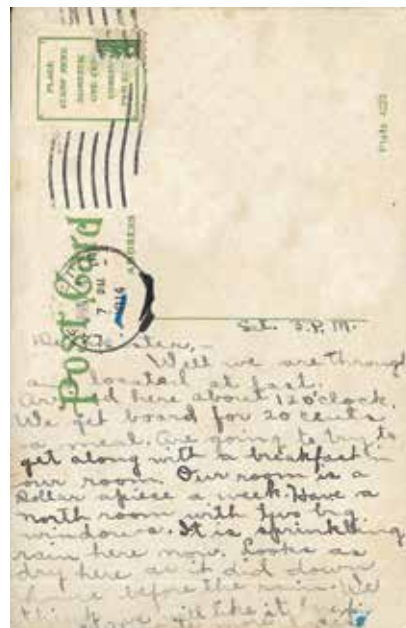 PLACE
STAMP HERE
DOMESTIC
ONE CENT
Post Card
ADDRESS
7 PM
1914
Sat. 3. P. M.
Well we are through
located at last.
here about 12 o'clock.
We get board for 20 cents
a meal. Are going to try to
get along with a breakfast in
our room. Our room is a
dollar apiece a week. Have a
north room with two big
windows. It is sprinkling
rain here now. Looks as
dry here as it did down
home before the rain. We
think we will like it